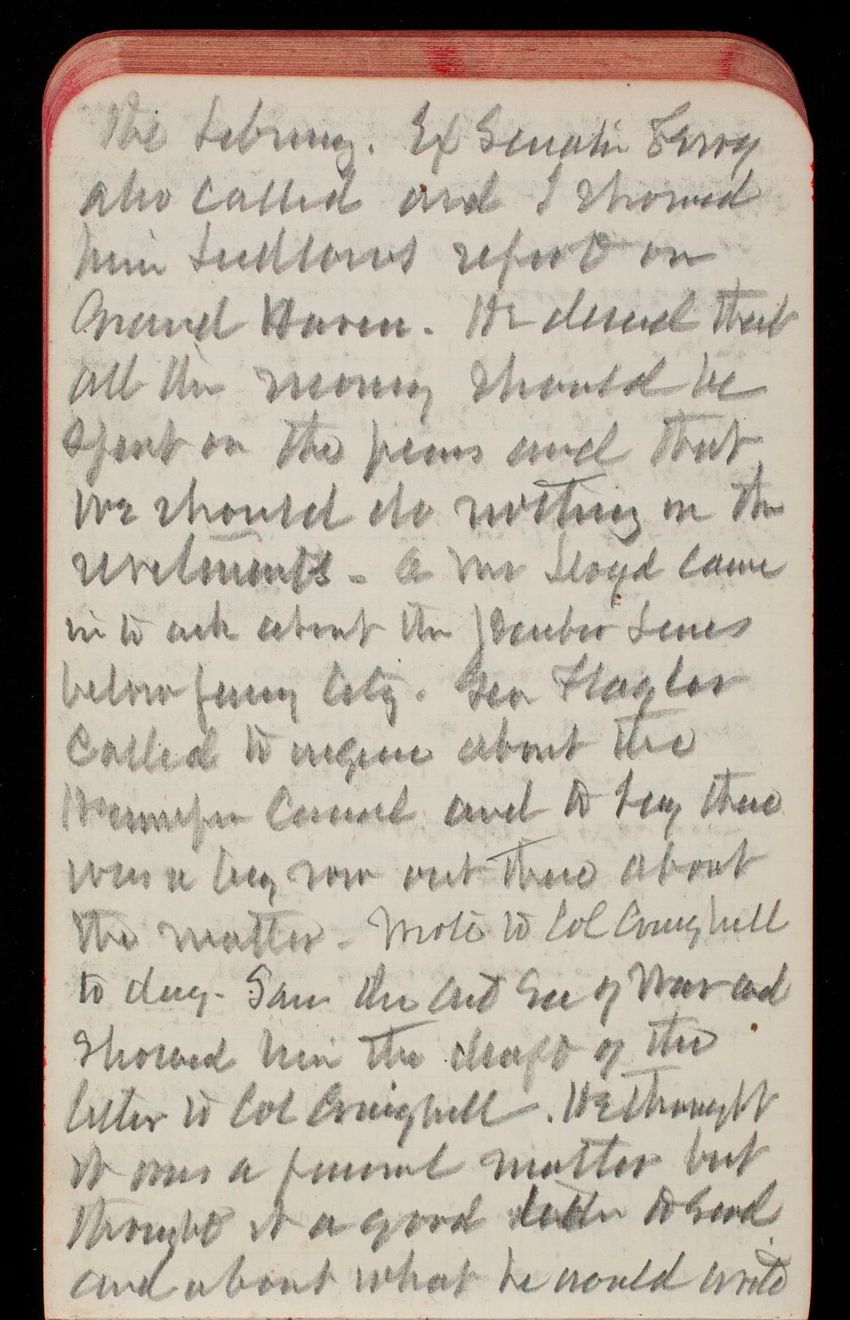 the library. Ex Senator Ferry
also called and I showed
him Ludlows report on
Grand Haven. He desired that
all the money should be
spent on the piers and that
we should do nothing on the
revetments - A Mr Lloyd came
in to ask about the Harbor Lines
below Jersey City. Geo Flagler
called to inquire about the
Hennepin Canal and to say there
was a big row out there about
the matter - Wrote to Col Craighill
to day - Saw the Act Sec of War and
showed him the draft of the
letter to Col Craighill. He thought
it was a funeral matter but
thought it a good letter to send
and about what he would write